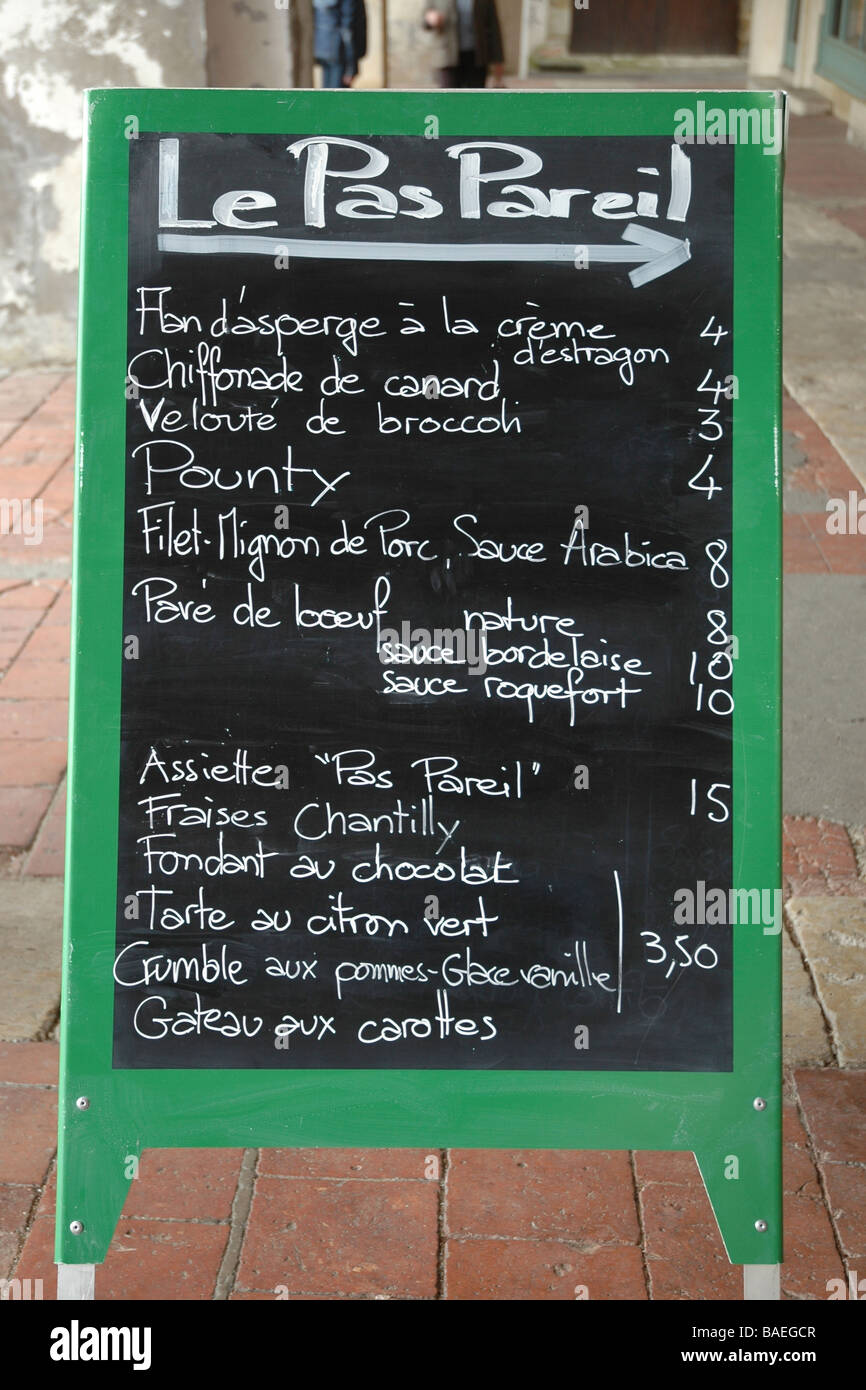 Le Pas Pareil
Flan d'asperge à la crème 4
d'estragon
Chiffonade de canard 4
Velouté de broccoli 3
Pounty 4
Filet-Mignon de Porc, Sauce Arabica 8
Pavé de boeuf nature 8
sauce bordelaise 10
sauce roquefort 10
Assiette "Pas Pareil" 15
Fraises Chantilly
Fondant au chocolat
Tarte au citron vert
Crumble aux pommes-Glace vanille 3,50
Gateau aux carottes
alamy
Image ID: BAEGCR
www.alamy.com